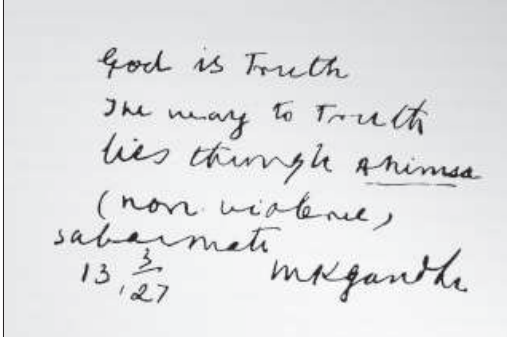 God is Truth
The way to Truth
lies through ahimsa
(non violence)
sabarmati
13,3/27 MKGandhi